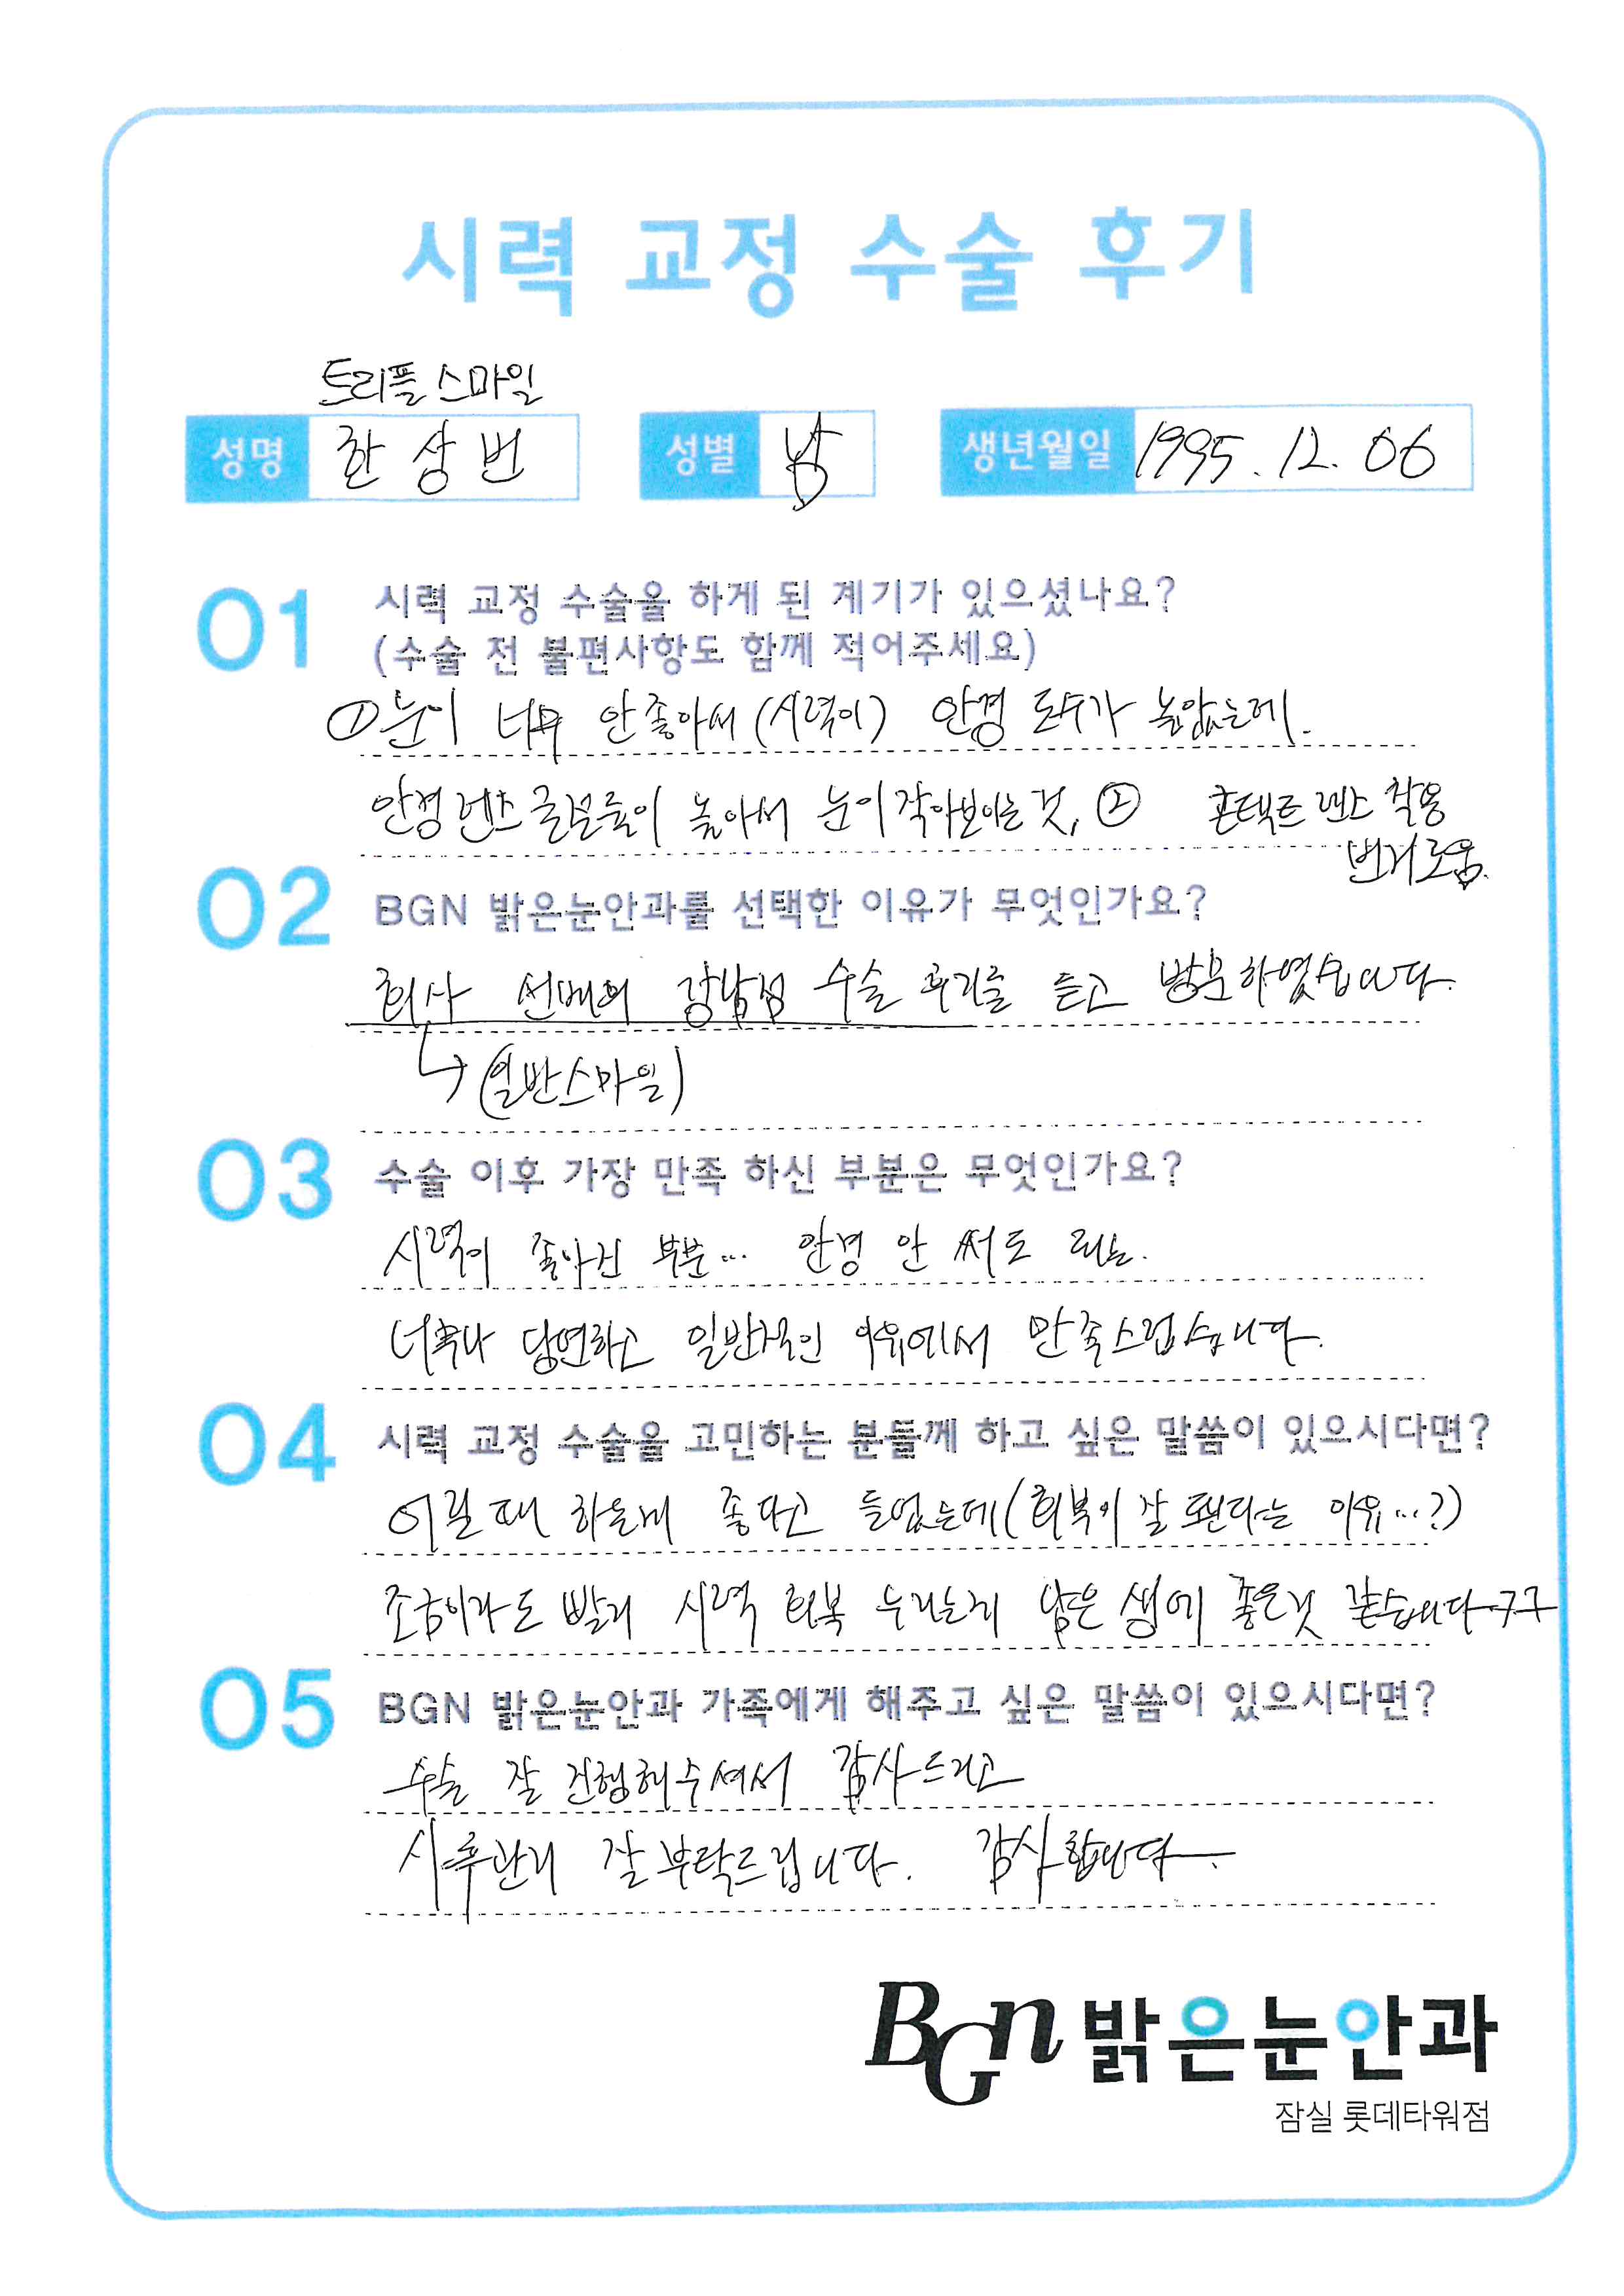 시력 교정 수술 후기
트리플스마일
성명 한상번 성별 남 생년월일 1995.12.06
01 시력 교정 수술을 하게 된 계기가 있으셨나요?
(수술 전 불편사항도 함께 적어주세요)
① 눈이 너무 안좋아서(시력이) 안경 도수가 높았는데.
안경렌즈 굴절률이 높아서 눈이 작아보이는것, ② 콘택트렌즈 착용
번거로움.
02 BGN 밝은눈안과를 선택한 이유가 무엇인가요?
회사 선배의 강남점 수술 후기를 듣고 방문하였습니다.
↳ (일반스마일)
03 수술 이후 가장 만족 하신 부분은 무엇인가요?
시력이 좋아진 부분... 안경 안 써도 되는.
너무나 당연하고 일반적인 이유에서 만족스럽습니다.
04 시력 교정 수술을 고민하는 분들께 하고 싶은 말씀이 있으시다면?
어릴때 하는게 좋다고 들었는데(회복이 잘 된다는 이유...?)
조금이라도 빨리 시력 회복 누리는게 남은 생에 좋은것 같습니다.ㅋㅋ
05 BGN 밝은눈안과 가족에게 해주고 싶은 말씀이 있으시다면?
수술 잘 진행해주셔서 감사드리고
사후관리 잘 부탁드립니다. 감사합니다.
BGN 밝은눈안과
잠실 롯데타워점